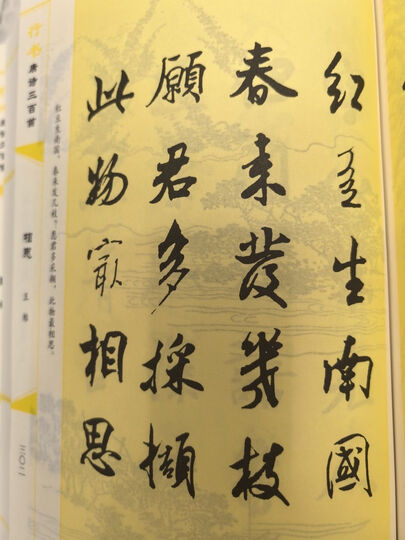 红豆生南國
春来發幾枝
願君多採擷
此物最相思
红豆生南国，春来发几枝？愿君多采撷，此物最相思。
行书
唐诗三百首
相思
王维
二〇二